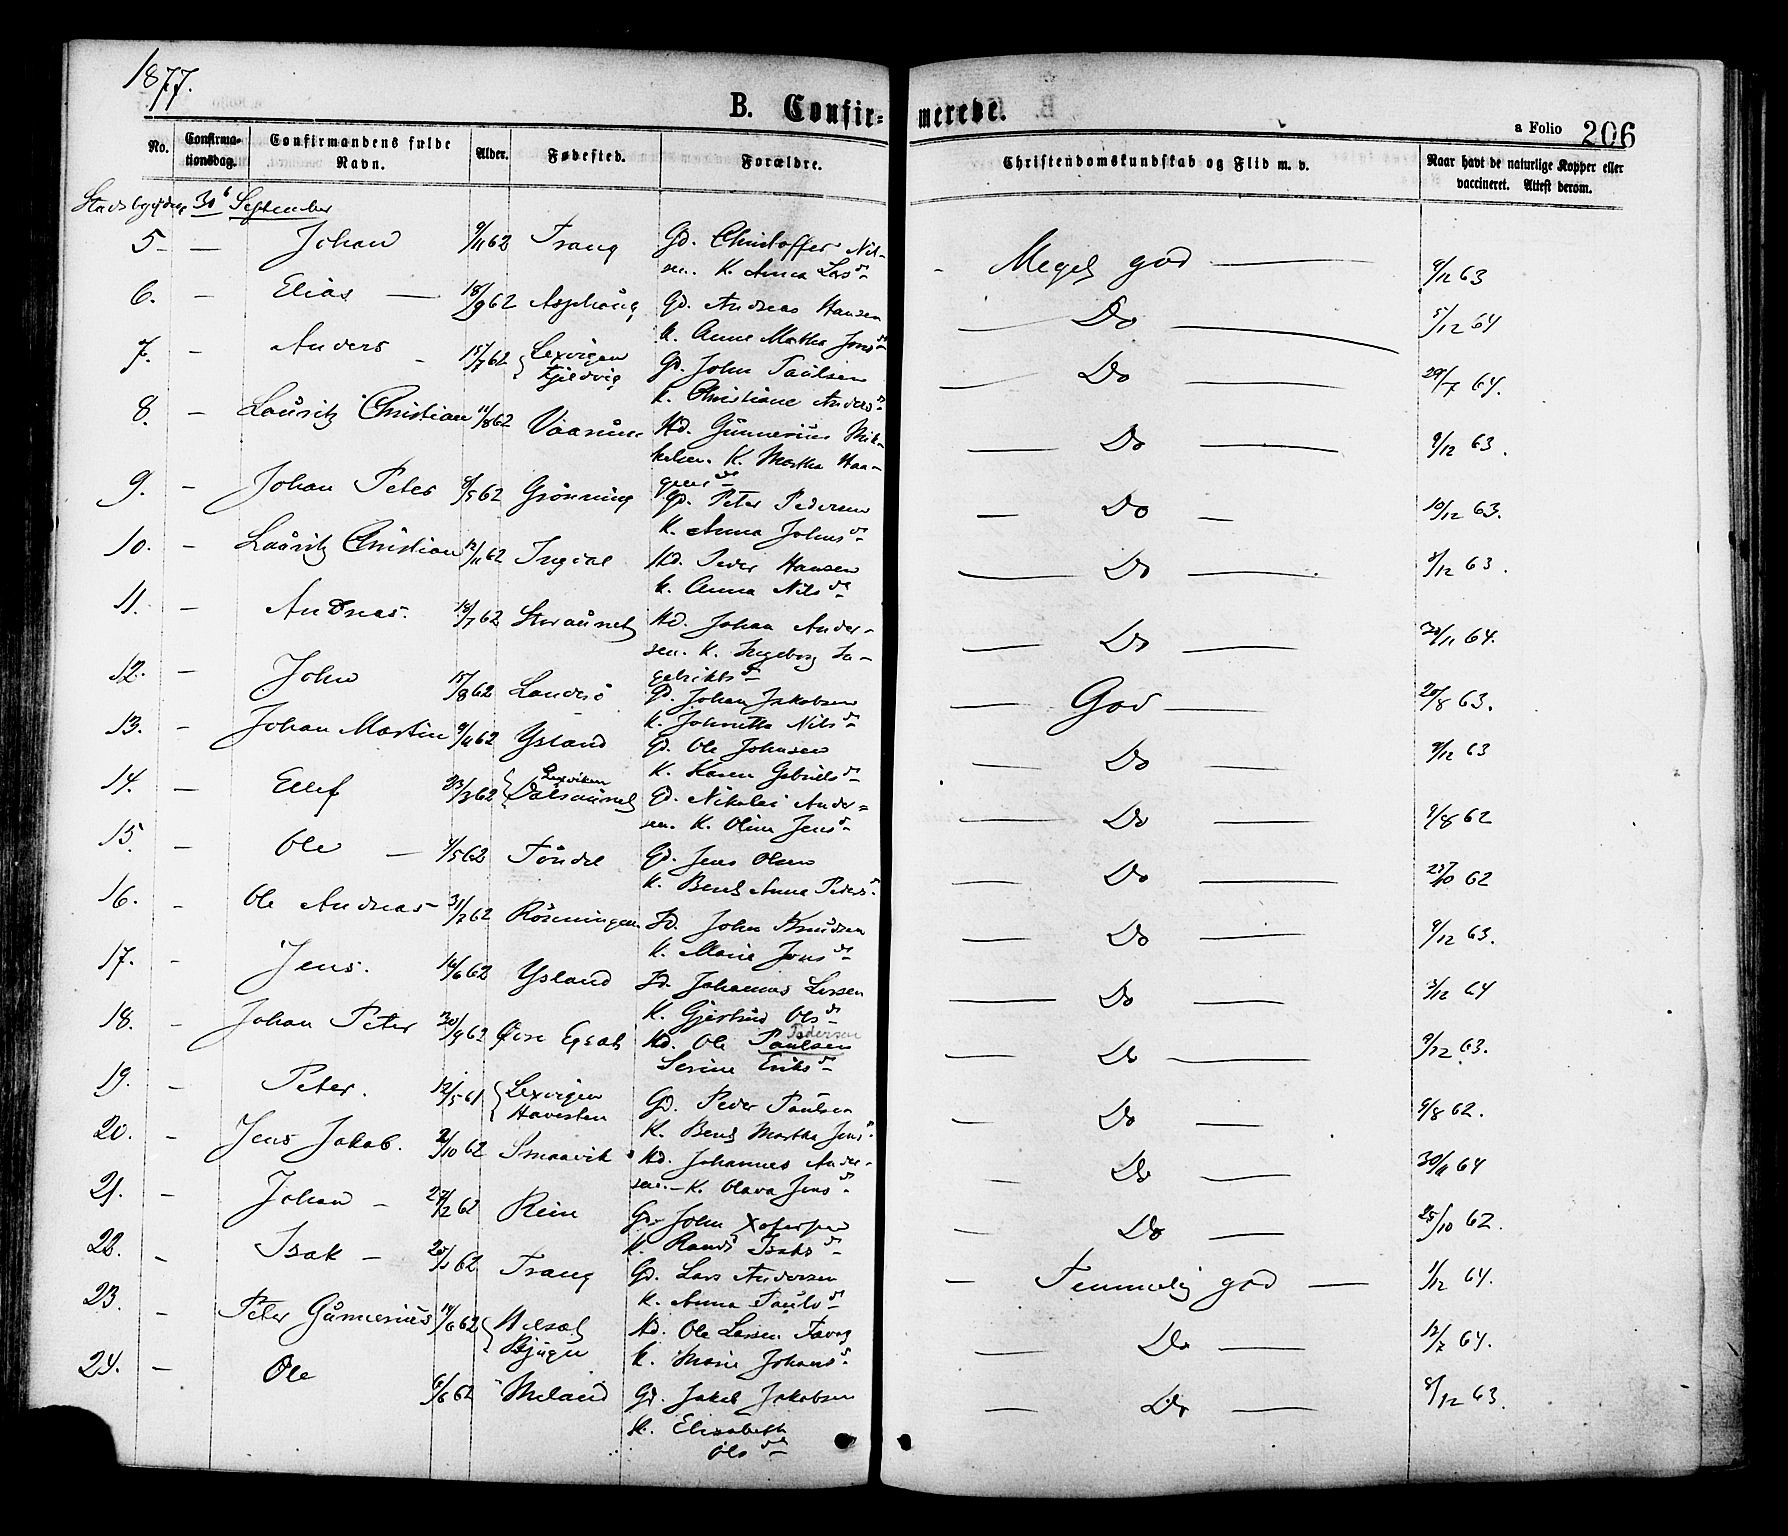 1877.
B. Confir- merede.
a Folio 206
No. Confirma-tionsdag. Confirmandens fulde Navn. Alder. Fødested. Forældre. Christendomskundskab og Flid m. v. Naar havt de naturlige Kopper eller vaccineret. Attest derom.
Stadsbygden 30 September
5 — Johan 9/11 62 Trang Gd. Christoffer Nil-
sen. K. Anna Lars d. Meget god 9/12 63
6. — Elias 18/9 62 Asphaug Gd. Andreas Hansen
K. Anne Martha Jons d. Do 5/12 64
7. — Anders 15/7 62 Lexvigen Kjeldvig Gd. John Paulsen
K. Christiane Anders d. Do 29/7 64.
8. — Lauritz Christian 11/8 62 Hd. Gunnerius Mik-
kelsen. K. Martha Haa-
gens d. Do 9/12 63.
9. — Johan Peter 8/5 62 Grønning Gd. Peter Pedersen
K. Anna Johns d. Do 10/12 63.
10. — Lauritz Christian 12/11 62 Ingdal Hd. Peder Hansen
K. Anna Nils d. Do 3/12 63.
11. — Andreas. 18/7 62 Storaunet Hd. Johan Ander-
sen. K. Ingeborg In-
gebrikts d. Do 30/11 64.
12. — John 15/8 62 Landrø Gd. Johan Jakobsen
K. Johnetta Nils d. God 20/8 63.
13. — Johan Martin 9/11 62 Ysland Gd. Ole Johnsen
K. Karen Gabriels d. Do 9/12 63
14. — Ellef 23/3 62 Lexviken Dalsaunet Gd. Nikolai Ander-
sen. K. Oline Jens d. Do 9/8 62
15. — Ole 4/5 62 Tøndel Gd. Jens Olsen
K. Beret Anna Peders d. Do 27/10 62
16. — Ole Andreas 31/3 62 Rønningen Hd. John Knudsen
K. Marie Jons d. Do 9/12 63.
17. — Jens. 14/6 62 Ysland Hd. Johannes Larsen
K. Gjertrud Ols d. Do 3/12 64
18. — Johan Peter 30/9 62 Hd. Ole Paulsen Pedersen
Serine Eriks d. Do 9/12 63.
19. — Peter. 12/5 61 Lexvigen Havesten Gd. Peder Paulsen
K. Beret Martha Jens d. Do 9/8 62.
20. — Jens Jakob. 2/10 62 Smaavik Hd. Johannes Ander-
sen. — K. Olava Jens d. Do 30/11 64
21. — Johan 27/2 62 Rein Gd. John Xofersen
K. Randi Isaks d. Do 25/10 62.
22. — Isak — 62 Trang Gd. Lars Andersen
K. Anna Pauls d. Temmelig god 1/12 64.
23. — Peter Gunnerius 14/6 62 Bjugn Hd. Ole Larsen
K. Marie Johans d. Do 12/7 64.
24. — Ole 6/6 62 Meland Gd. Jakob Jakobsen
K. Elisabeth
Ols d. Do 8/12 63.